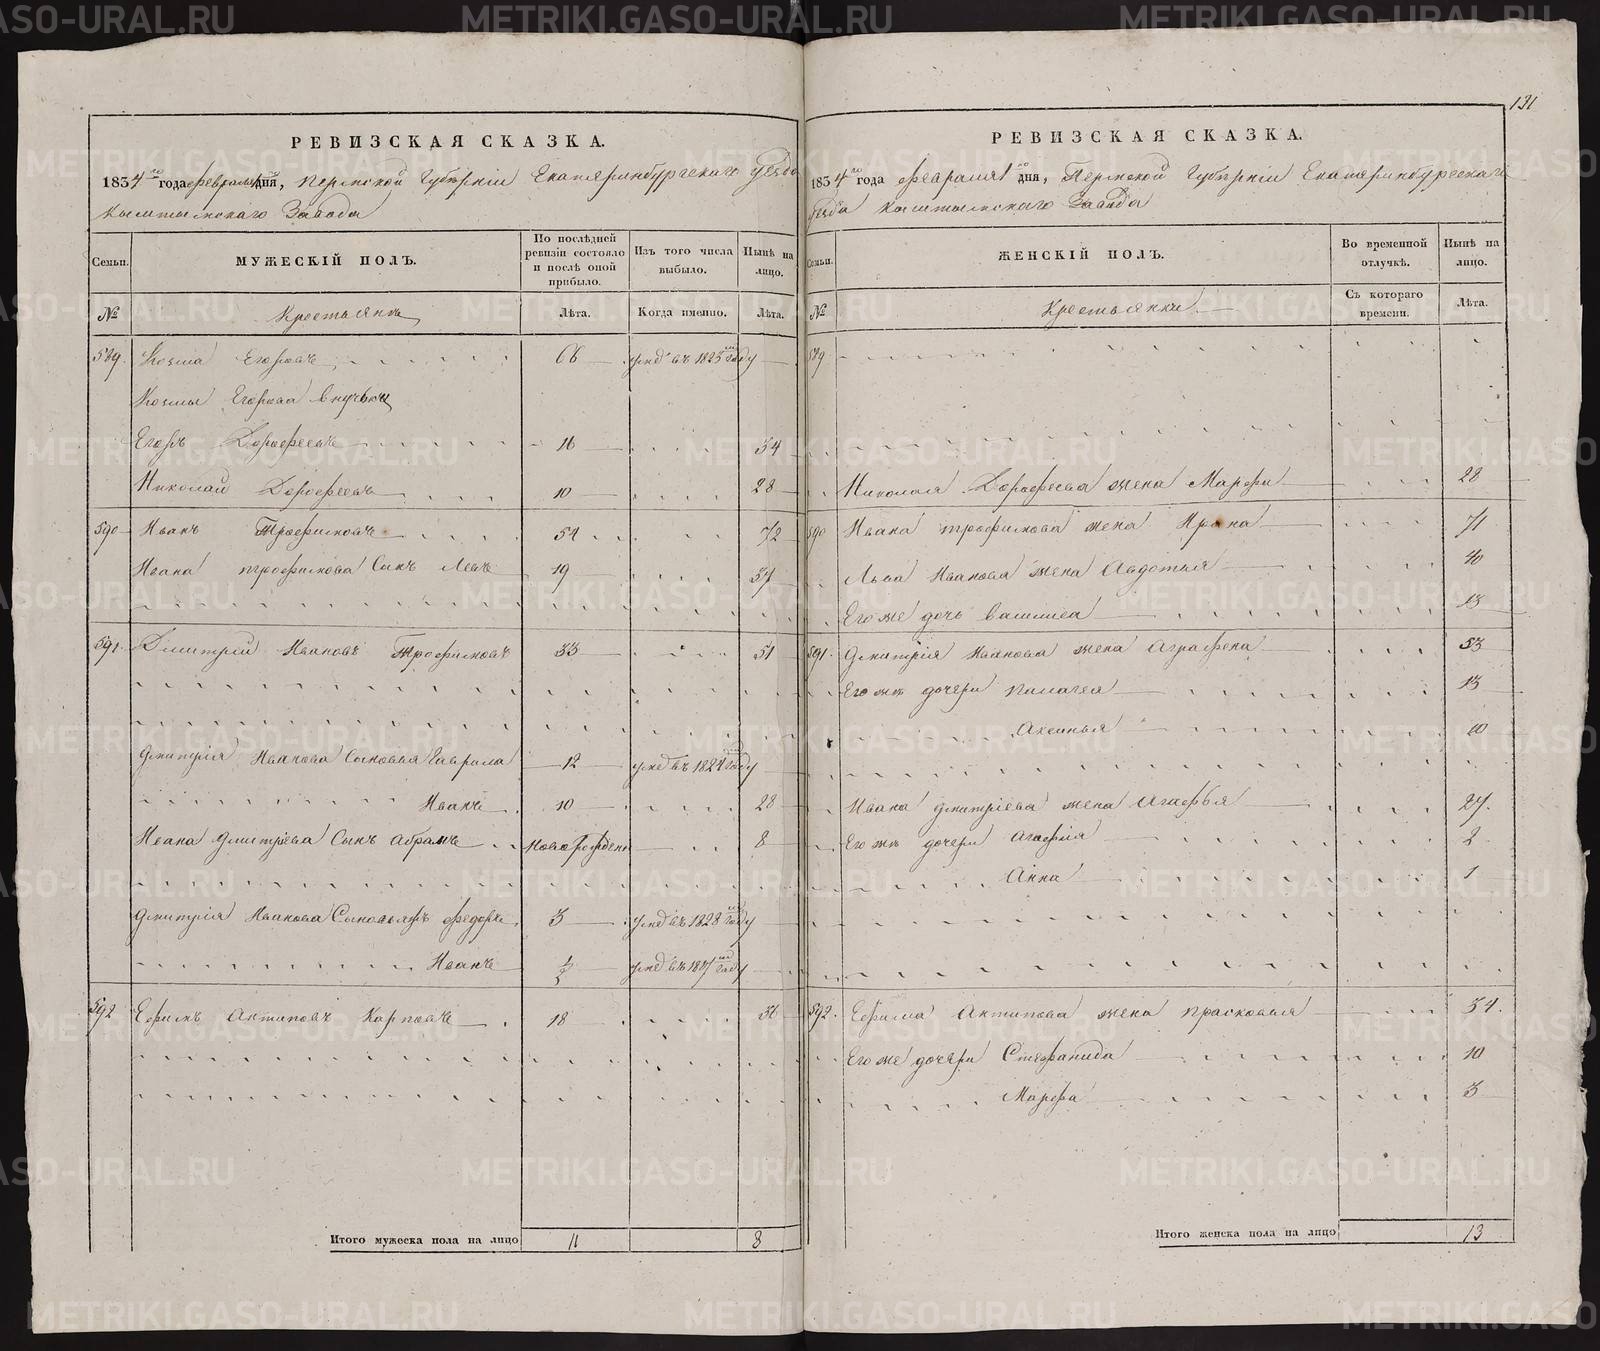 131
РЕВИЗСКАЯ СКАЗКА.
1834 го года февраля 1 дня, Пермской Губернiи Екатеринбургскаго уезда
Кыштымскаго Завода
Семьи.
МУЖЕСКIЙ ПОЛЪ.
По послѣдней ревизiи состояло и послѣ оной прибыло.
Изъ того числа выбыло.
Нынѣ на лицо.
№
Крестьянъ
Лѣта.
Когда именно.
Лѣта.
589 Козма Егоровъ 66 умеръ въ 1825 году
Козмы Егорова внучьки
Егоръ Дорофеевъ 16 34
Николай Дорофеевъ 10 28
590 Иванъ Трофимовъ 54 72
Ивана трофимова Сынъ Левъ 19 37
591 Дмитрiй Ивановъ Трофимовъ 33 51
Дмитрiя Иванова Сыновья Гаврила 12 умеръ въ 1824 году
Иванъ 10 28
Ивана Дмитрiева Сынъ Абрамъ новорожденъ 8
Дмитрiя Иванова Сыновья Федоръ 3 умеръ въ 1828 году
Иванъ 1/2 умеръ въ 1817 году
592 Ефимъ Антиповъ Карповъ 18 36
Итого мужеска пола на лицо 11 8
РЕВИЗСКАЯ СКАЗКА.
1834 го года февраля 1 го дня, Пермской Губернiи Екатеринбургскаго
уезда Кыштымскаго Завода
Семьи.
ЖЕНСКIЙ ПОЛЪ.
Во временной отлучкѣ.
Нынѣ на лицо.
№
Крестьянки
Съ котораго времени.
Лѣта.
589
Николая Дорофеева жена Марфа 28
590 Ивана трофимова жена Ирина 71
Льва Иванова жена Авдотья 40
Его же дочь василиса 13
591. Дмитрiя Иванова жена Аграфена 53
Его же дочери Палагея 13
Аксинья 10
Ивана Дмитрiева жена Агафья 27.
Его же дочери Агафiя 2
Анна 1
592. Ефима Антипова жена прасковья 34.
Его же дочери Стефанида 10
Марфа 3
Итого женска пола на лицо 13
METRIKI.GASO-URAL.RU